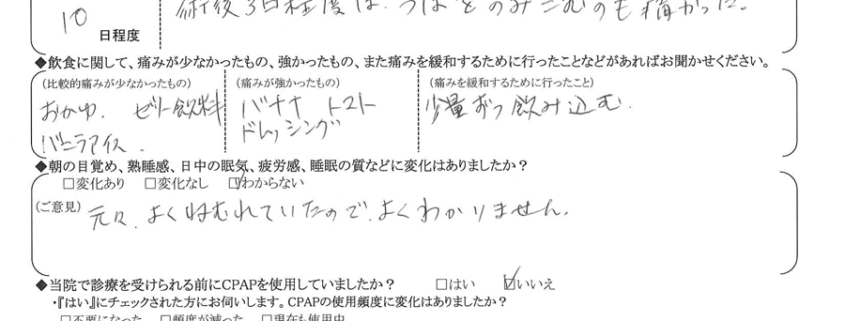 術後3日程度は、つばをのみこむのも痛かった。
10 日程度
◆飲食に関して、痛みが少なかったもの、強かったもの、また痛みを緩和するために行ったことなどがあればお聞かせください。
(比較的痛みが少なかったもの) (痛みが強かったもの) (痛みを緩和するために行ったこと)
おかゆ、ゼリー飲料 バナナ トマト 少量ずつ飲み込む.
バニラアイス. ドレッシング
◆朝の目覚め、熟睡感、日中の眠気、疲労感、睡眠の質などに変化はありましたか?
□変化あり □変化なし ☑わからない
(ご意見) 元々、よくねむれていたので、よくわかりません。
◆当院で診療を受けられる前にCPAPを使用していましたか? □はい ☑いいえ
・『はい』にチェックされた方にお伺いします。CPAPの使用頻度に変化はありましたか?
□不要になった □頻度が減った □現在も使用中